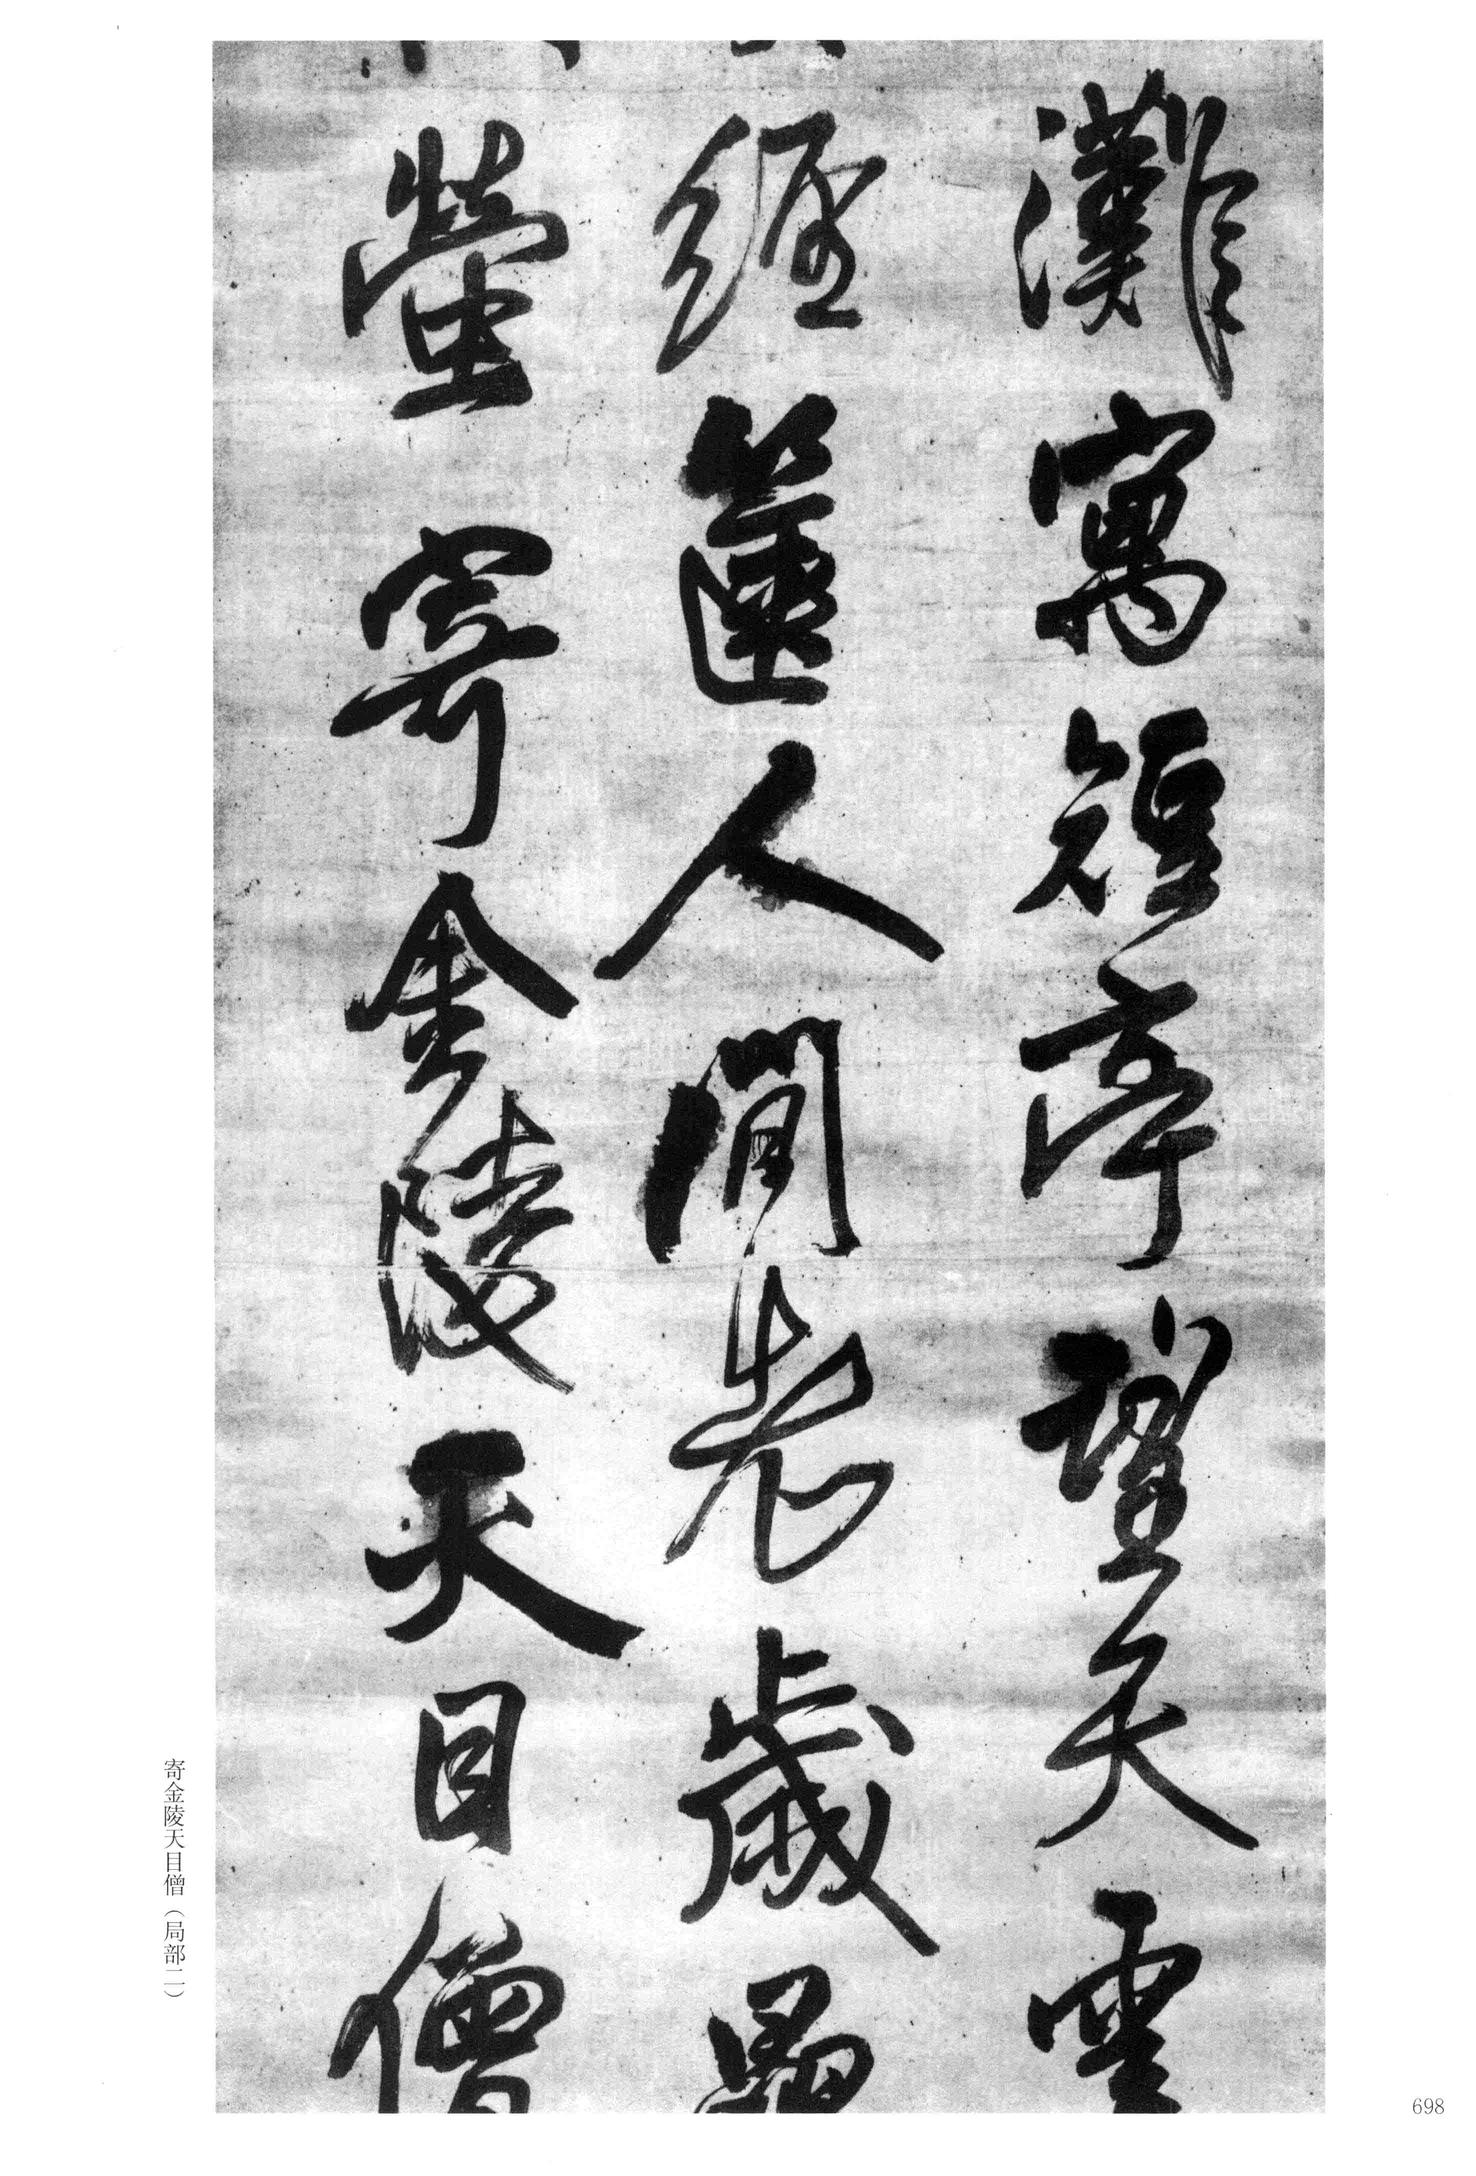 灘寓短亭望天雲
經篋人間老歲
螢寄金陵天目僧
寄金陵天目僧（局部二）
698